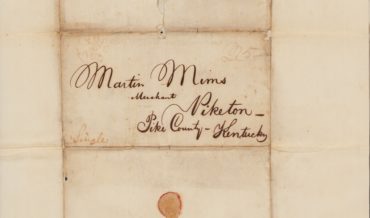 25
Martin Mims
Merchant
Piketon -
Pike County - Kentucky
Single